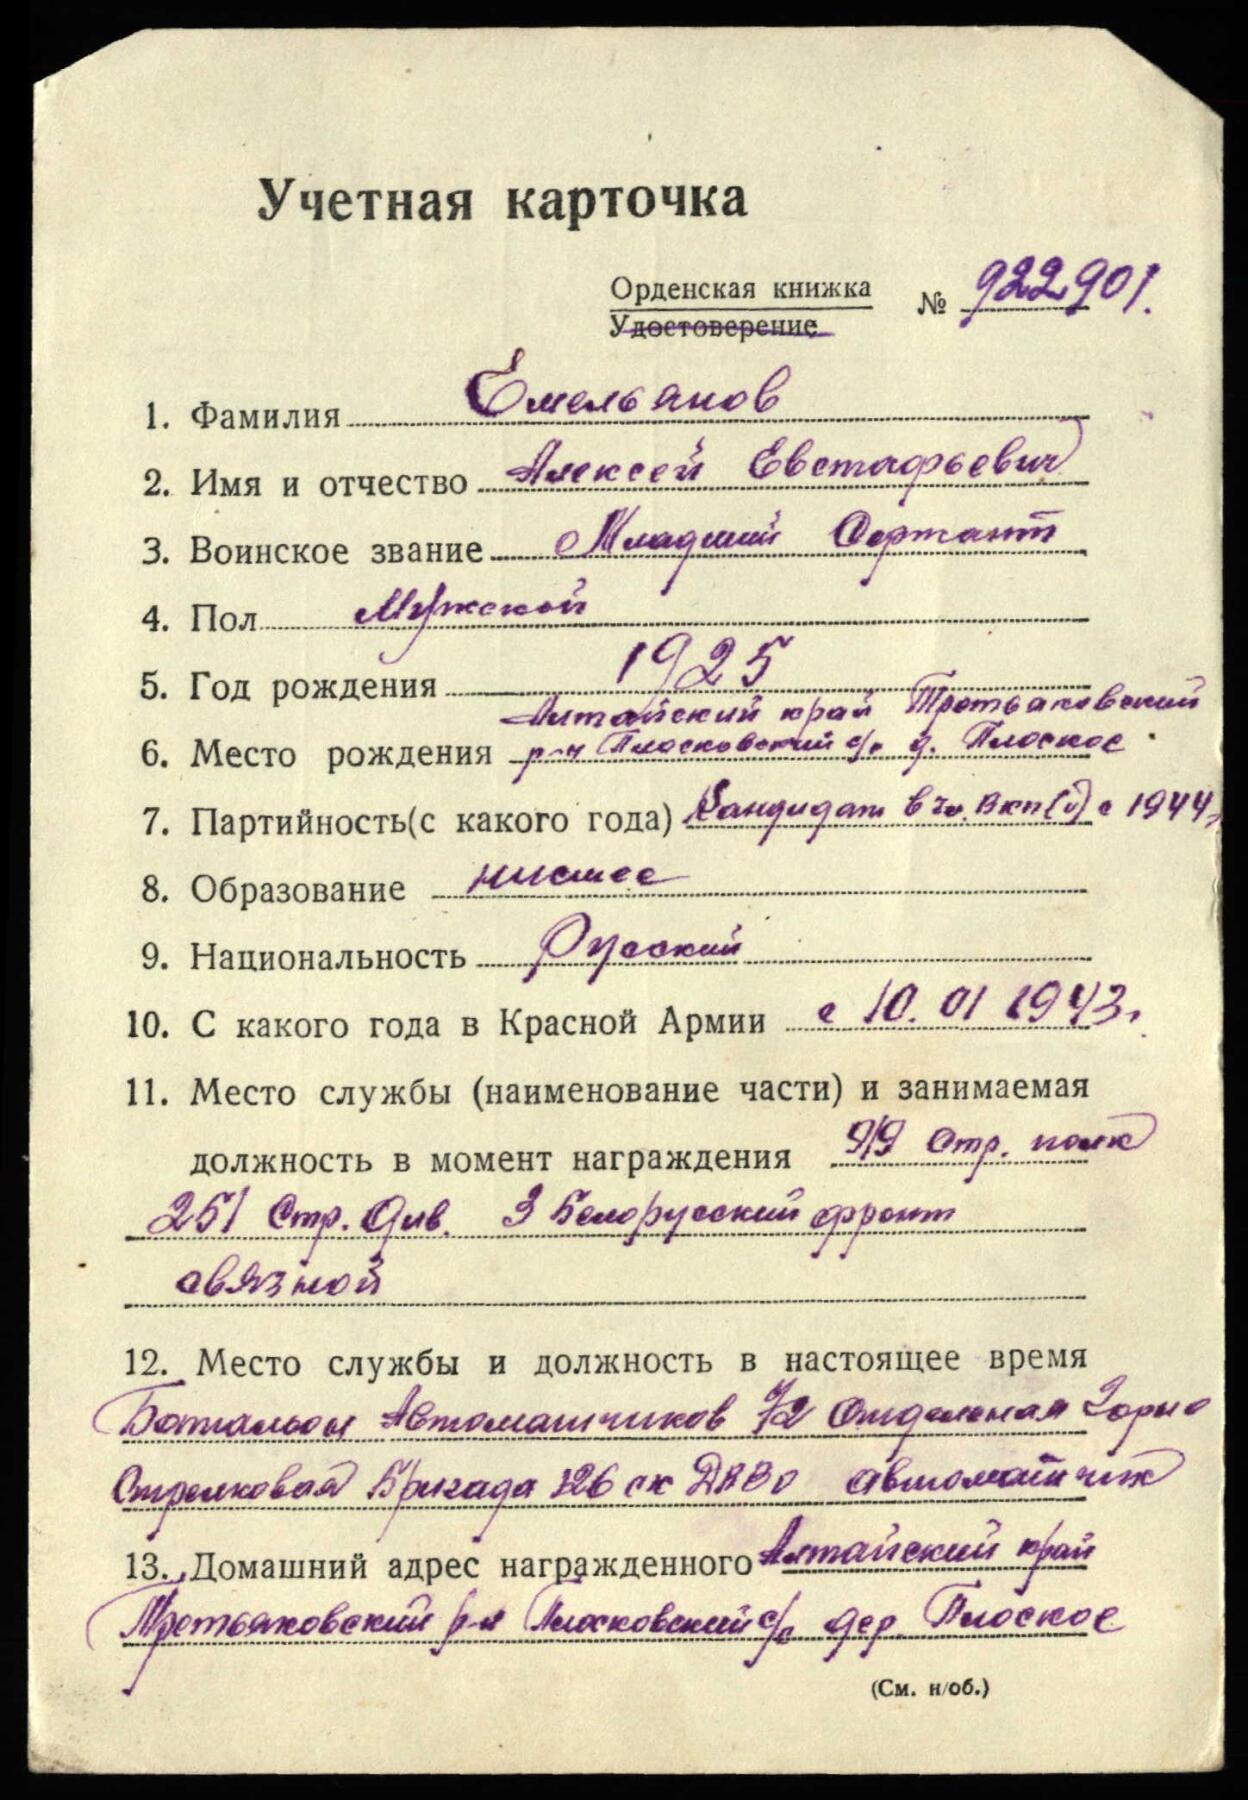 Учетная карточка
Орденская книжка № 922901.
Удостоверение
1. Фамилия Емельянов
2. Имя и отчество Алексей Евстафьевич
3. Воинское звание Младший Сержант
4. Пол Мужской
5. Год рождения 1925
Алтайский край Третьяковский
6. Место рождения р-н Плосковский с/с д. Плоское
7. Партийность(с какого года) Кандидат в чл. ВКП(б) с 1944г
8. Образование низшее
9. Национальность Русский
10. С какого года в Красной Армии с 10.01 1943г.
11. Место службы (наименование части) и занимаемая
должность в момент награждения 919 Стр. полк
251 Стр. Див. 3 Белорусский фронт
связной
12. Место службы и должность в настоящее время
Батальон Автоматчиков 72 Отдельная Горно
Стрелковая Бригада 126 ск ДВВО автоматчик
13. Домашний адрес награжденного Алтайский край
Третьяковский р-н Плосковский с/с дер. Плоское
(См. н/об.)